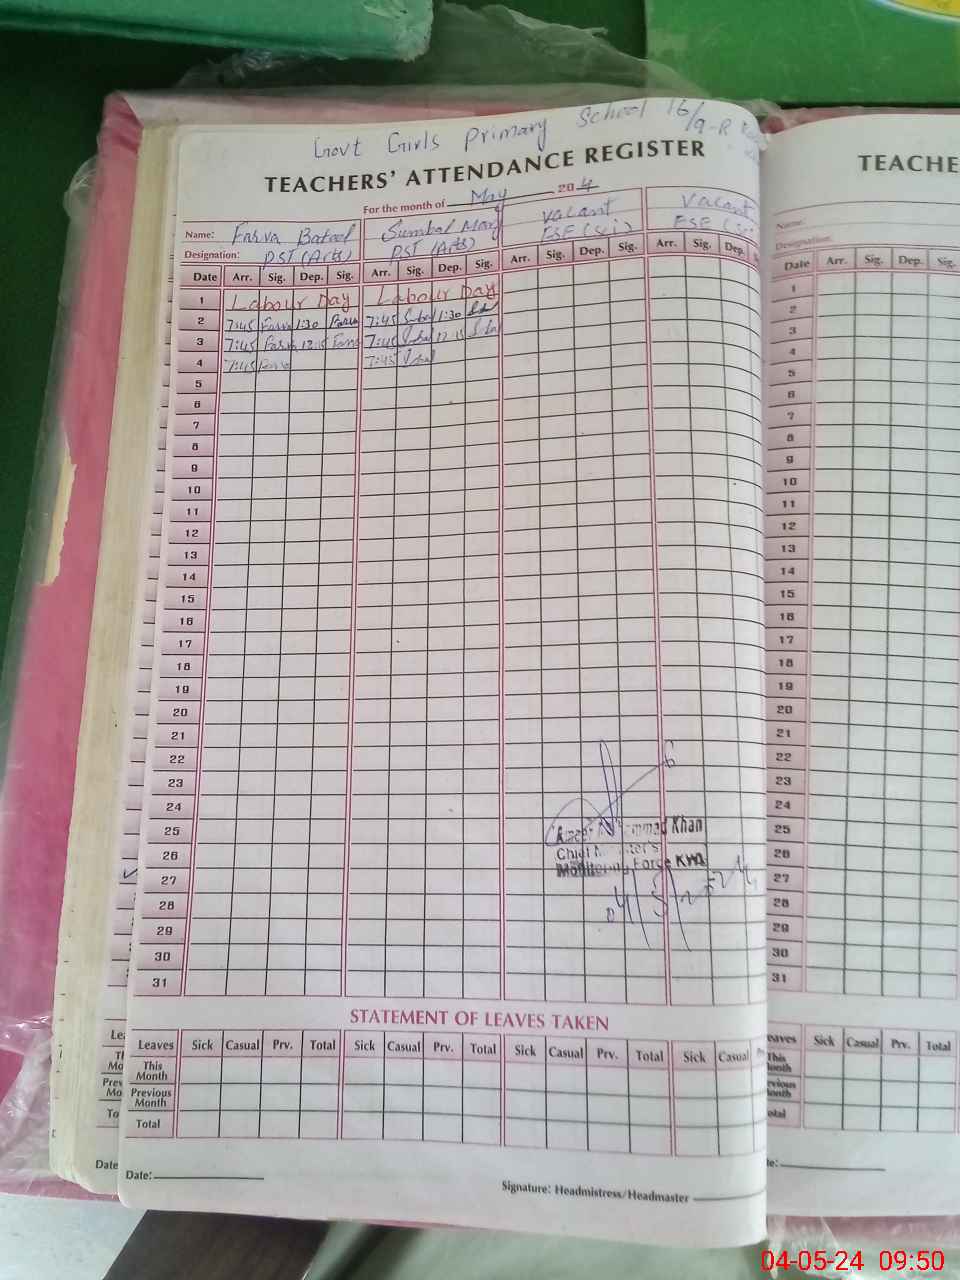 Govt Girls Primary School 16/9-R
TEACHERS' ATTENDANCE REGISTER
For the month of May 204
Name: Farva Batool Sumbal Vacant Vacant
Designation: PST (Arts) PST (Arts) ESE (Sci) ESE (Sci
Date Arr. Sig. Dep. Sig. Arr. Sig. Dep. Sig. Arr. Sig. Dep. Sig. Arr. Sig. Dep.
1 Labour Day Labour Day
2 7:45 Farva 1:30 Farva 7:45 1:30
3 7:45 Farva 12:15 Farva 7:45 12:15
4 7:45 Farva 7:45
5
6
7
8
9
10
11
12
13
14
15
16
17
18
19
20
21
22
23
24
25
26
27
28
29
30
31
Khan
Chief
Monitoring Force KWL
STATEMENT OF LEAVES TAKEN
Leaves Sick Casual Prv. Total Sick Casual Prv. Total Sick Casual Prv. Total Sick Casual
This Month
Previous Month
Total
Date:
Signature: Headmistress/Headmaster
TEACHE
Name:
Designation:
Date Arr. Sig. Dep. Sig.
1
2
3
4
5
6
7
8
9
10
11
12
13
14
15
16
17
18
19
20
21
22
23
24
25
26
27
28
29
30
31
eaves Sick Casual Prv. Total
This
onth
evious
onth
otal
te:
04-05-24 09:50